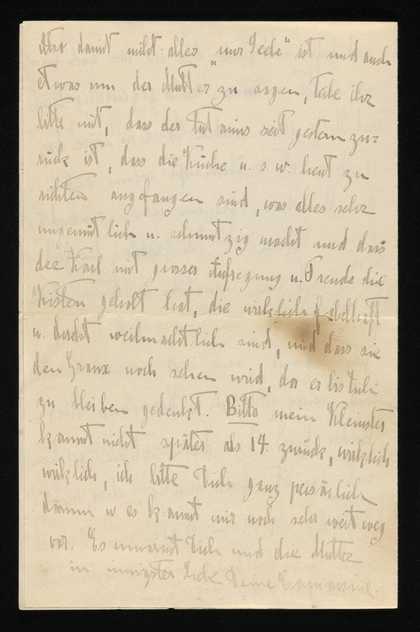 Aber damit nicht alles "nur Rede" ist und auch
etwas um der Mutter zu sagen, teile ihr
bitte mit, dass der seit gestern zu-
rück ist, dass die Küche u. s. w. heut zu
richten angefangen sind, was alles sehr
ungemütlich u. schmutzig macht und dass
der Karl mit grosser Aufregung u. Freude die
Kisten geholt hat, die wirklich fabelhaft
u. weihnachtlich sind, und dass sie
den Franz noch sehen wird, da er bis
zu bleiben gedenkt. Bitte mein Kleinster
kommt nicht später als 14 zurück, wirklich
wirklich, ich bitte Dich ganz persönlich
darum es kommt mir noch sehr weit weg
vor. Es umarmt Dich und die Mutter
in innigster Liebe Deine